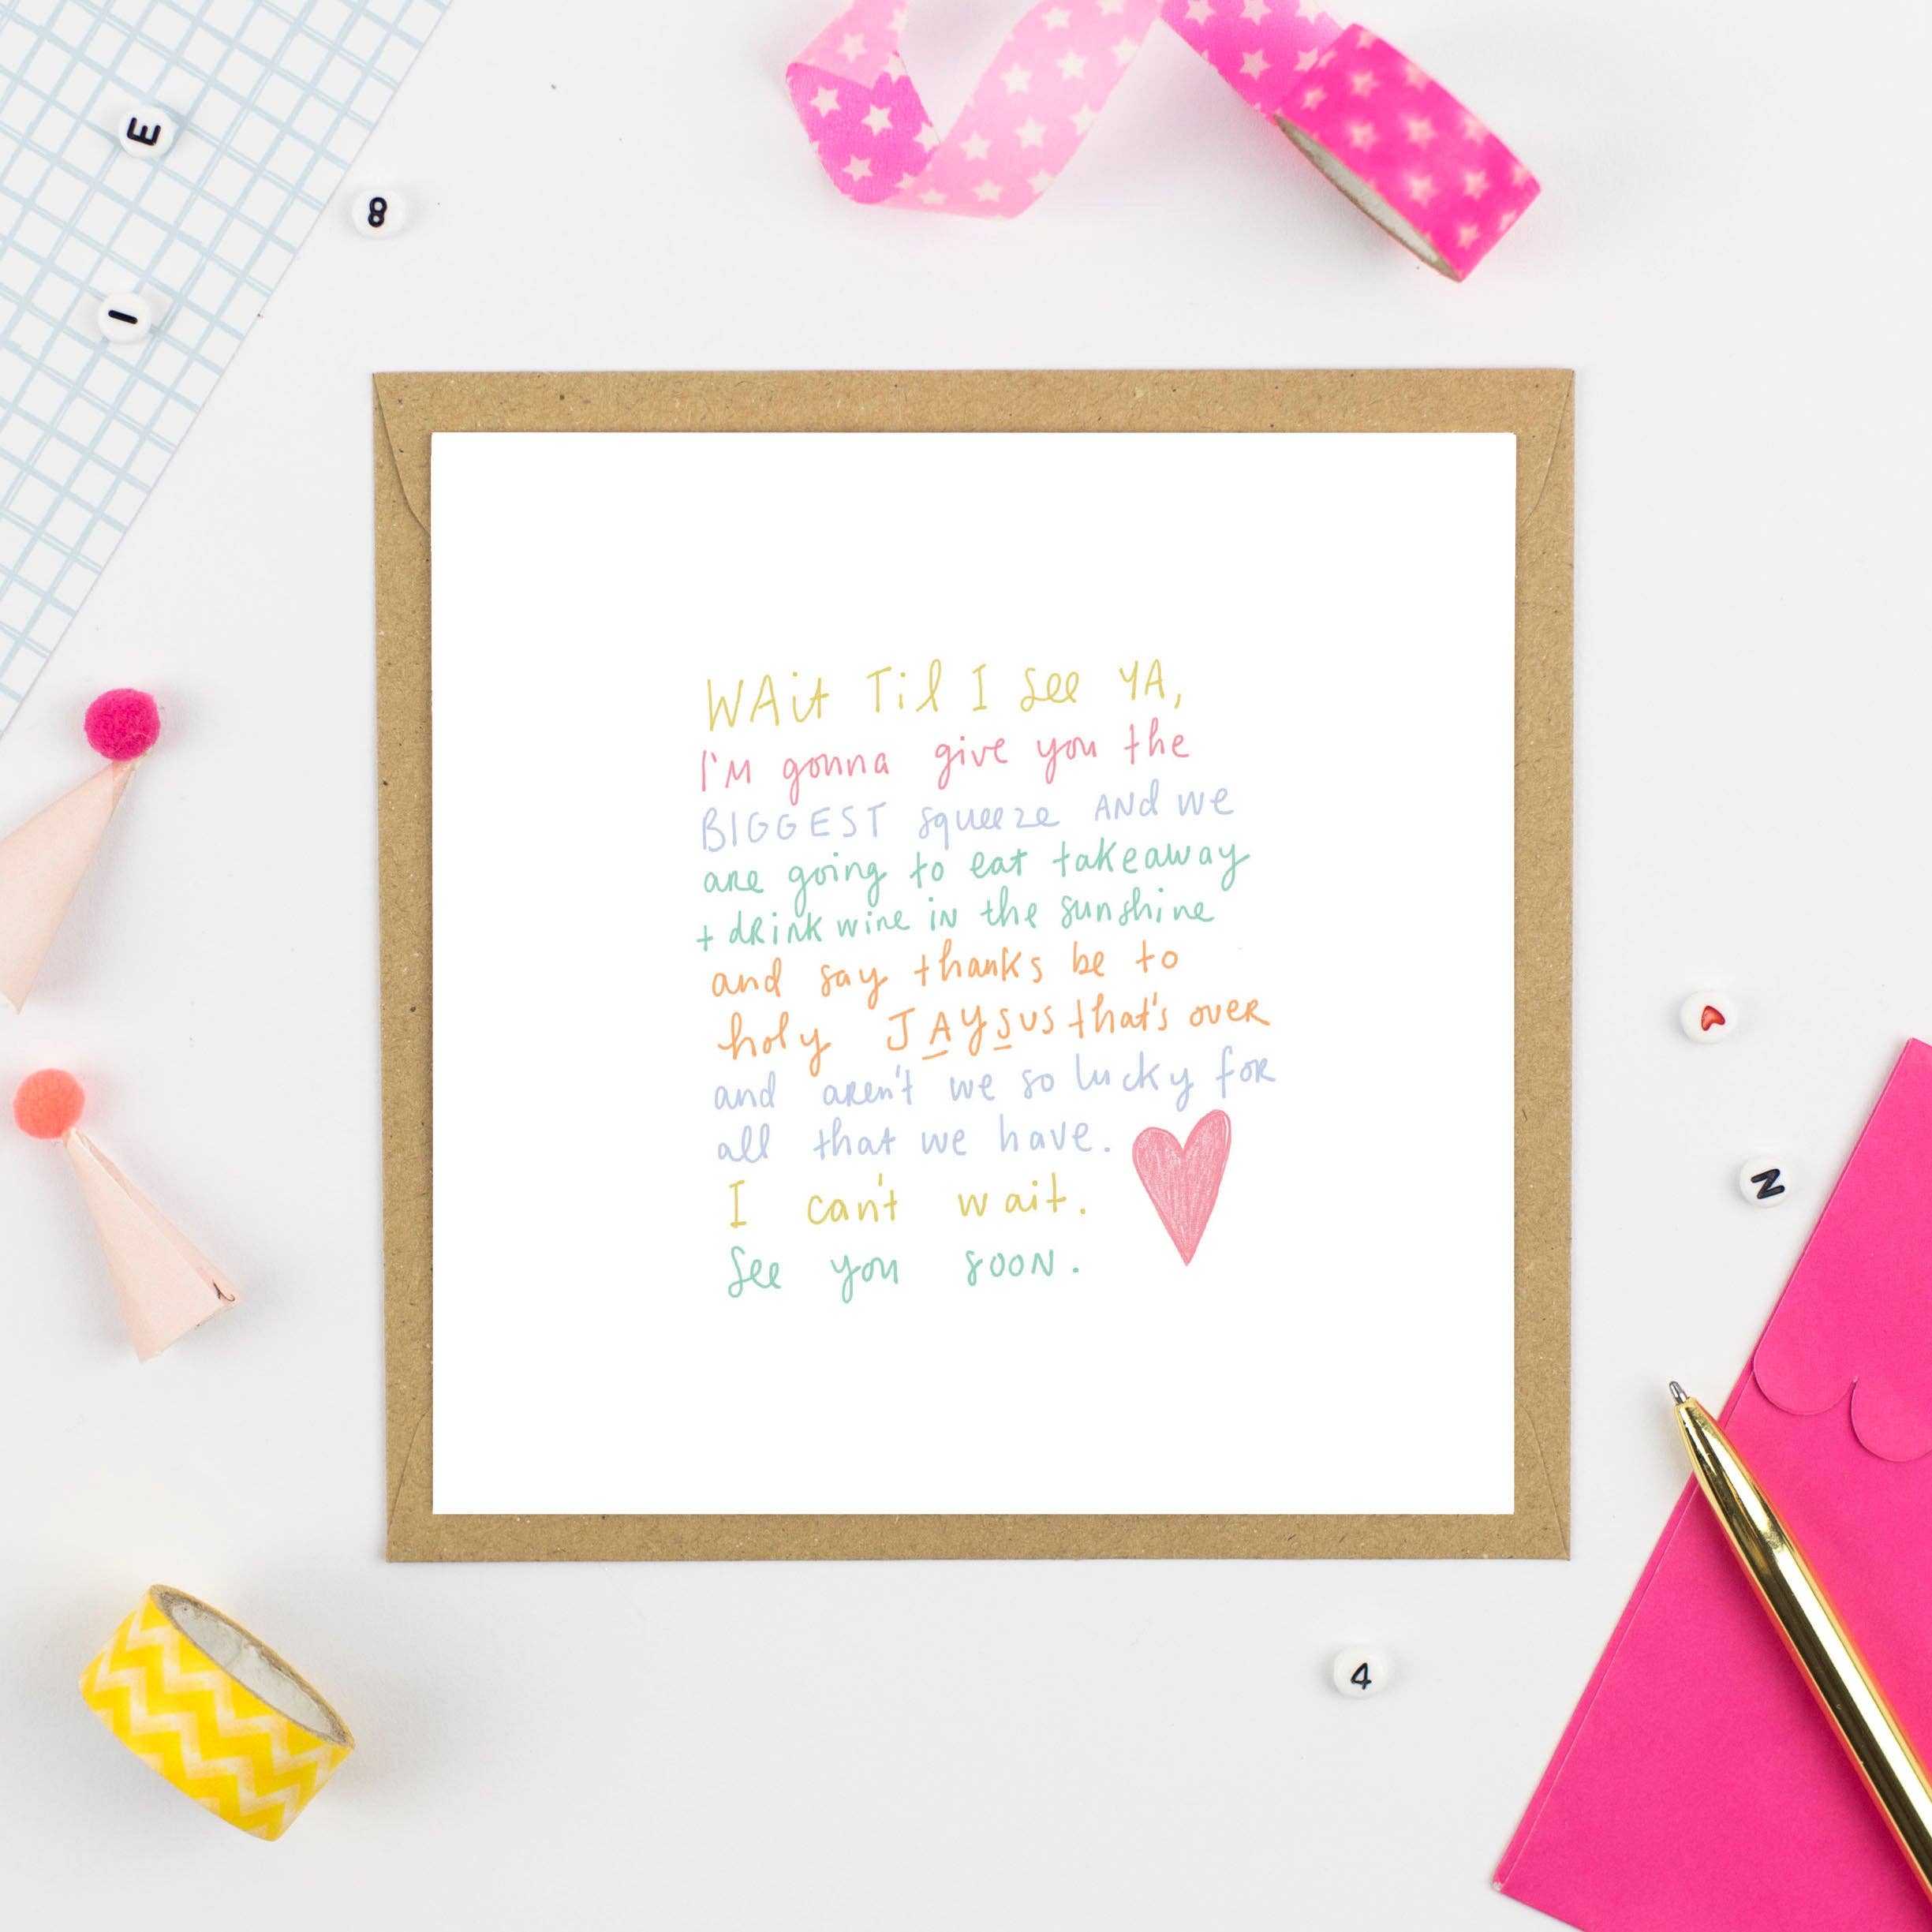 E
8
I
WAit Til I see YA,
I'M gonna give you the
BIGGEST squeeze ANd we
are going to eat takeaway
+ dRink wine in the sunshine
and say thanks be to
holy JAYSUS that's oveR
and aren't we so lucky foR
all that we have.
I can't wait.
See you sooN.
N
4